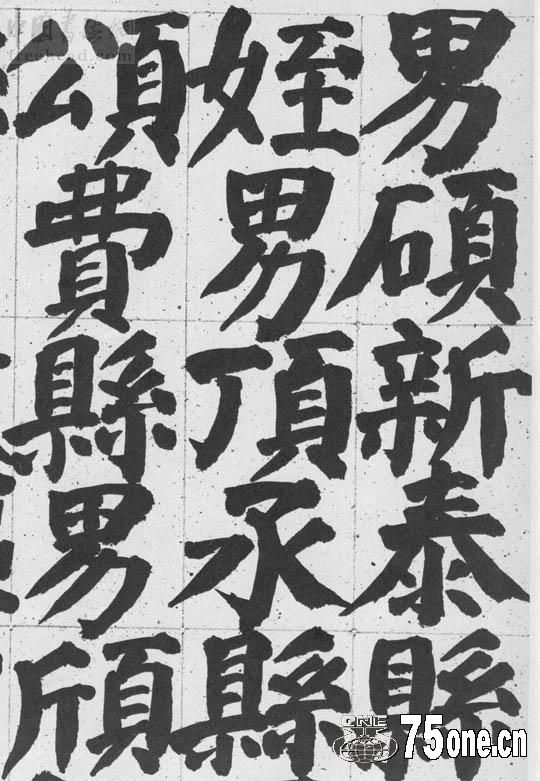 男碩新泰縣
姪男頂承縣
頌費縣男頎
ONE
75one.cn